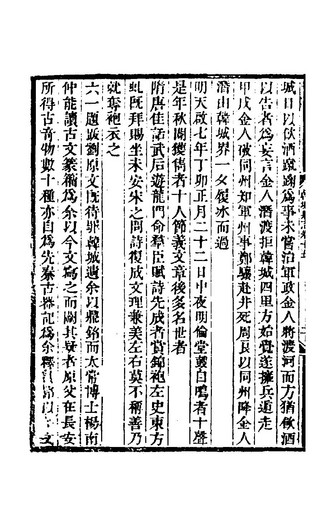 城日以飲酒蹴踘爲事未嘗治軍政金人將渡河而方猶飲酒
以告者爲妄言金人潛渡拒韓城四里方始覺迯擁兵遁走
甲戌金人破同州知軍州事鄭驤赴井死周良以同州降金人
潛由韓城界一夕履氷而過
明天啟七年丁卯正月二十二日中夜明倫堂鼓自鳴者十聲
是年秋闈獲雋者十人節義文章後多名世者
隋唐佳話武后遊龍門命羣臣賦詩先成者賞錦袍左史東方
虬既拜賜坐未安宋之問詩復成文理兼美左右莫不稱善乃
就奪袍衣之
六一題跋劉原父既得罪韓城遺余以鼎銘而太常博士楊南
仲能讀古文篆籀爲余以今文寫之而闕其疑者原父在長安
所得古奇物數十種亦自爲先秦古器記爲余釋